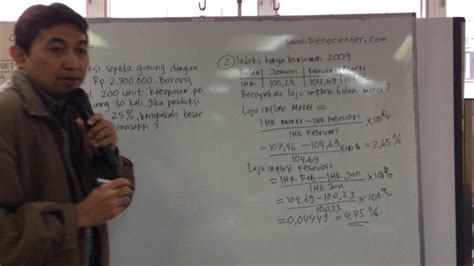 www.bienecenter.com
si sepeda gunung dengan
Rp 2.700.000. Barang
200 unit, kecepatan pe
30 kali jika produksi
25%, berapakah besar
② Indeks harga konsumen 2009
Bulan Januari Februari Maret
IHK 100,23 104,69
Berapakah laju inflasi bulan maret?
Laju inflasi Maret =
= IHK maret - IHK Februari ×100%
IHK Februari
= 107,46 - 104,69 ×100% = 2,65%
104,69
Laju inflasi Februari
= IHK Feb - IHK Jan ×100%
IHK Jan
= 104,69 - 100,23 ×100%
100,23
= 0,04449 = 4,45 %